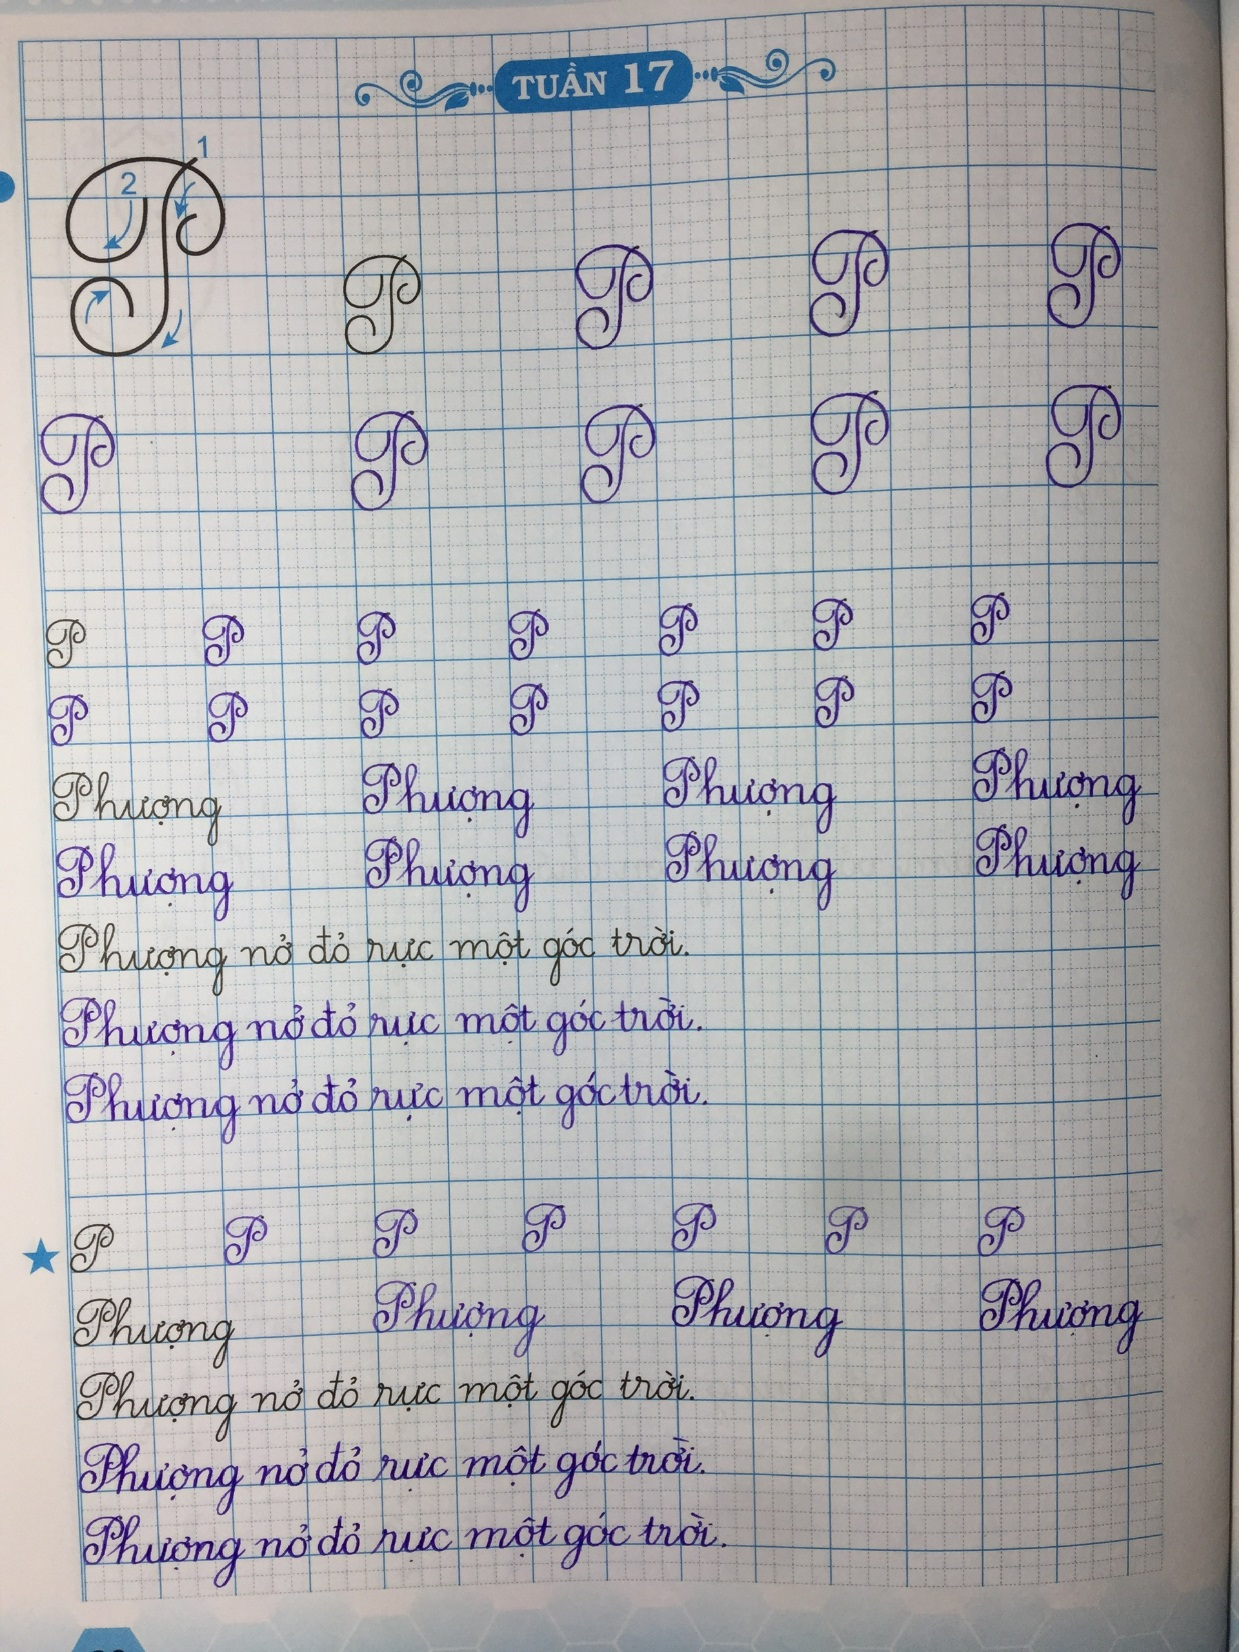 TUẦN 17
1
2
P P P P
P P P P P
P P P P P P P
P P P P P P P
Phượng Phượng Phượng Phượng
Phượng Phượng Phượng Phượng
Phượng nở đỏ rực một góc trời.
Phượng nở đỏ rực một góc trời.
Phượng nở đỏ rực một góc trời.
P P P P P P P
Phượng Phượng Phượng Phượng
Phượng nở đỏ rực một góc trời.
Phượng nở đỏ rực một góc trời.
Phượng nở đỏ rực một góc trời.